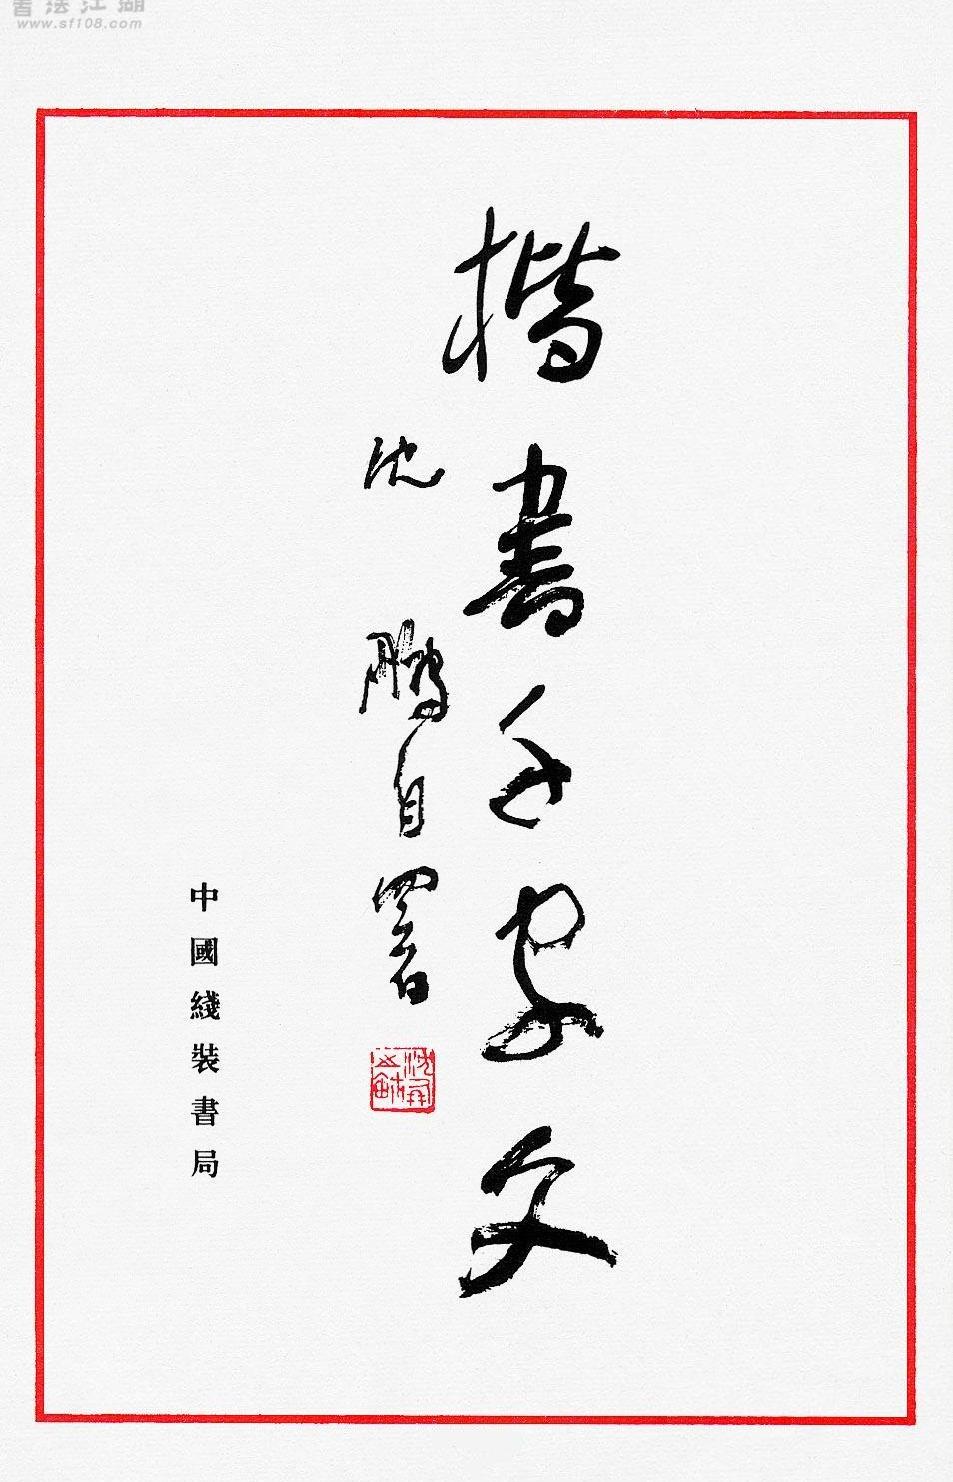 書法江湖
www.sf108.com
楷書千字文
沈鵬自署
中國綫裝書局